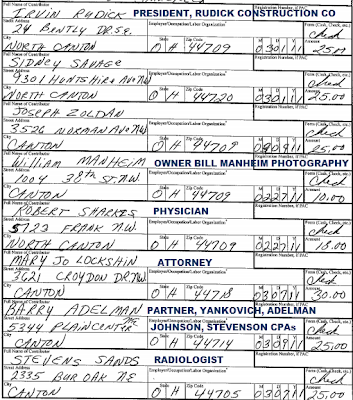 Full Name of Contributor Registration Number, if PAC
Irvin Rudick PRESIDENT, RUDICK CONSTRUCTION CO
Street Address Employer/Occupation/Labor Organization Form (Cash, Check, etc.)
24 Bently Dr. S.E. Check
City State Zip Code M D Y Amount
North Canton OH 44709 03 01 11 25.00
Full Name of Contributor Registration Number, if PAC
Sidney Savage
Street Address Employer/Occupation/Labor Organization Form (Cash, Check, etc.)
9301 Huntshire Ave NW Check
City State Zip Code M D Y Amount
North Canton OH 44720 03 01 11 25.00
Full Name of Contributor Registration Number, if PAC
Joseph Zoldan
Street Address Employer/Occupation/Labor Organization Form (Cash, Check, etc.)
3526 Norman Ave NW Check
City State Zip Code M D Y Amount
Canton OH 44709 11 25.00
Full Name of Contributor Registration Number, if PAC
William Manheim OWNER BILL MANHEIM PHOTOGRAPHY
Street Address Employer/Occupation/Labor Organization Form (Cash, Check, etc.)
1004 38th St. NW Check
City State Zip Code M D Y Amount
Canton OH 44709 02 27 11 10.00
Full Name of Contributor Registration Number, if PAC
Robert Sharkes PHYSICIAN
Street Address Employer/Occupation/Labor Organization Form (Cash, Check, etc.)
5723 Frank N.W. Check
City State Zip Code M D Y Amount
North Canton OH 44709 02 27 11 18.00
Full Name of Contributor Registration Number, if PAC
Mary Jo Lockshin ATTORNEY
Street Address Employer/Occupation/Labor Organization Form (Cash, Check, etc.)
3621 Croydon Dr. NW Check
City State Zip Code M D Y Amount
Canton OH 44718 03 07 11 30.00
Full Name of Contributor Registration Number, if PAC
Barry Adelman PARTNER, YANKOVICH, ADELMAN
Street Address Form (Cash, Check, etc.)
5344 Plain Center JOHNSON, STEVENSON CPAs Check
City State Zip Code M D Y Amount
Canton OH 44714 03 07 11 25.00
Full Name of Contributor Registration Number, if PAC
Stevens Sands RADIOLOGIST
Street Address Employer/Occupation/Labor Organization Form (Cash, Check, etc.)
2335 Bur Oak NE Check
City State Zip Code M D Y Amount
Canton OH 44705 03 07 11 25.00